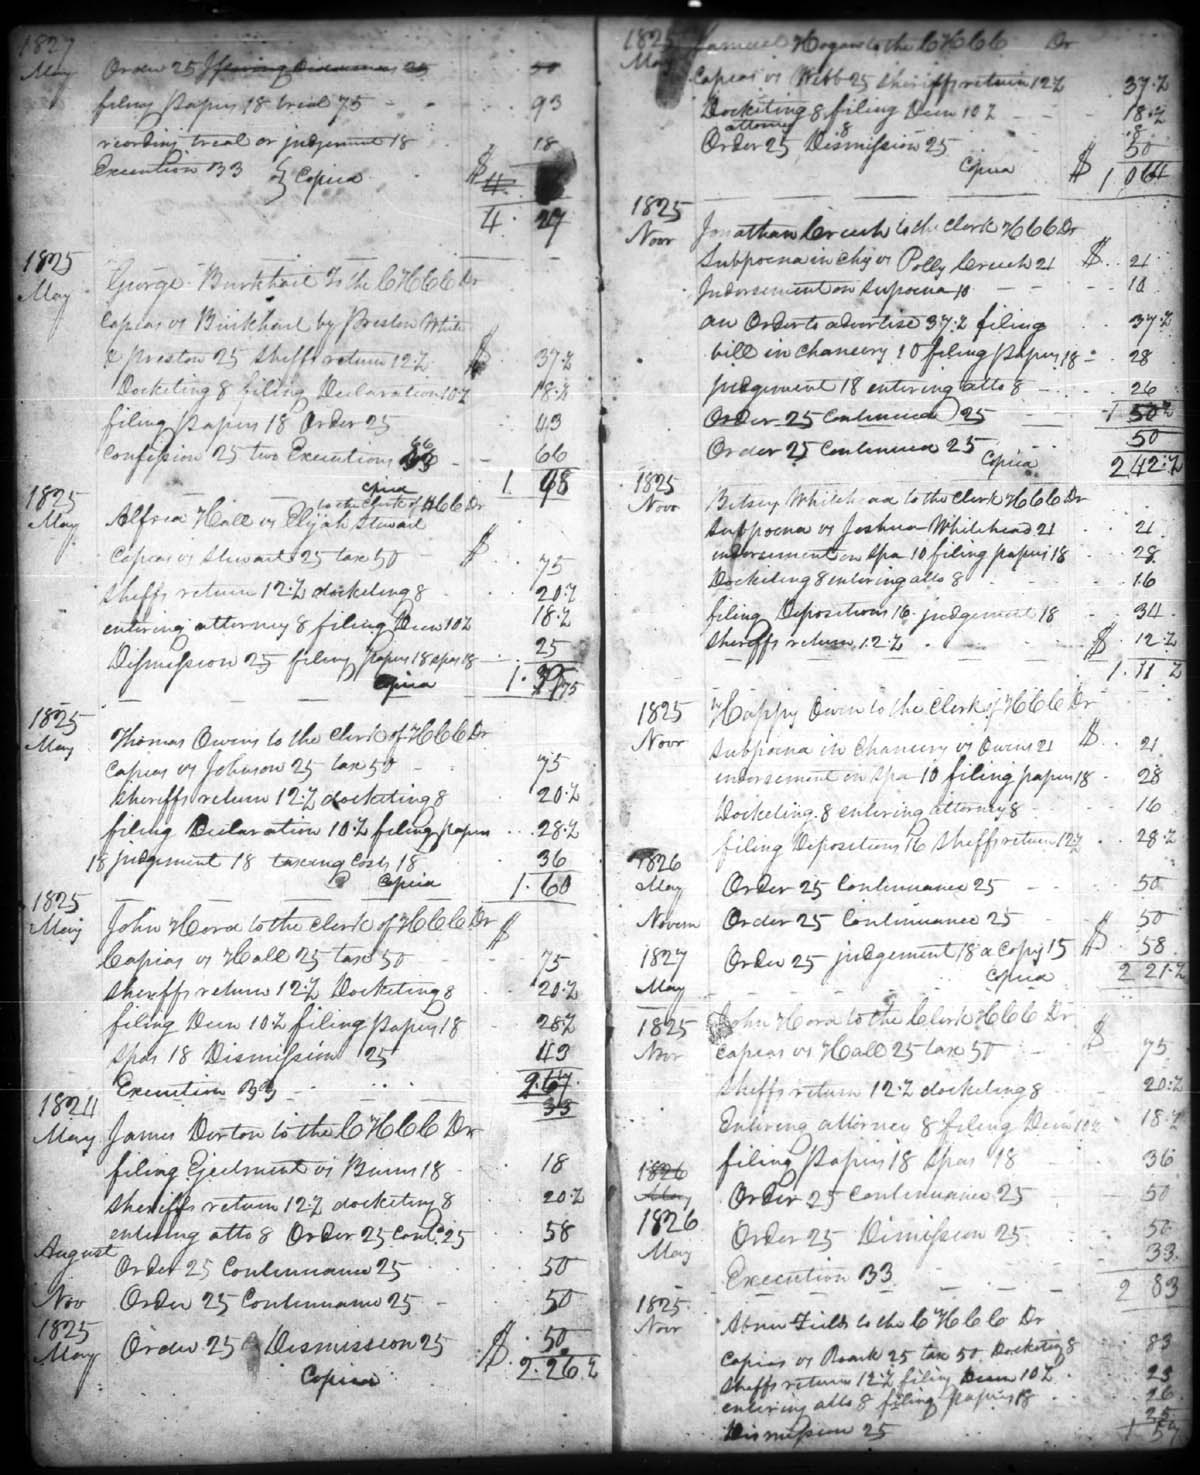 1827
May Order 25
filing Papers 18 trial 75 - - 93
recording treal or judgement 18 18
Execution 33 Copiea $ 4.
4. 27
1825
May George Burkhart To the C H C C C Dr
Capias vs Burkhart by Preston White
& Preston 25 Sheffs return 12½ $ 37.½
Docketing 8 filing Declaration 10½ 18.½
filing Papers 18 Order 25 43
Confession 25 two Executions 66 - - 66
Copiea 1. 98
1825
May Alfred Hall vs Elijah Stewart
to the Clerk of H C C Dr
Capias vs Stewart 25 tax 50 $ 75
sheffs return 12.½ docketing 8 20.½
entering attorney 8 filing Decn 10½ 18.½
Dismission 25 filing papers 18 spas 18 25
Copiea 1. 75
1825
May Thomas Owens to the Clerk of H C C C Dr
Capias vs Johnson 25 tax 50 - 75
Sheriffs return 12.½ docketing 8 20.½
filing Declaration 10½ filing papers 28.½
18 judgement 18 taxeing Costs 18 36
Copiea 1. 60
1825
May John Hord to the Clerk of H C C C Dr $
Capias vs Hall 25 tax 50 75
Sheriffs return 12.½ Docketing 8 20.½
filing Decn 10½ filing Papers 18 28½
spas 18 Dismission 25 43
Execution 33 2.67
33
1824
May James Dorton to the C H C C C Dr
filing Ejectment vs Burns 18 18
Sheriffs return 12½ docketing 8 20.½
entering atto 8 Order 25 Cont. 25 58
August Order 25 Continuance 25 50
Nov Order 25 Continuance 25 - 50
1825
May Order 25 Dismission 25 $ . 50
Copiea 2.26.½
1825 Samuel Hogans to the C H C C C Dr
May Capias vs Webb 25 Sheriffs return 12½ 37.½
Docketing 8 filing Decn 10½ 18.½
attorney 8 .8
Order 25, Dismission 25 50
Copiea $ 1,064
1825
Novr Jonathan Creech to the Clerk H C C C Dr
Subpoena in Chy vs Polly Creech 21 $ . 21
Indorsement on Supoena 10 - - - 10
an Order to advertise 37.½ filing 37.½
bill in Chancery 10 filing papers 18 - 28
judgement 18 entering atto 8 - 26
Order 25 Continued 25 1 50½
Order 25 Continued 25 50
Copiea 2 42.½
1825
Novr Betsey Whitehead to the Clerk H C C C Dr
Subpoena vs Joshua Whitehead 21 21
endorsement on Spa 10 filing papers 18 28
Docketing 8 entering atto 8 16
filing Depositions 16 judgement 18 34
Sheriffs return 12.½ $ 12.½
1.11 ½
1825 Happy Owen to the Clerk of H C C C Dr
Novr Subpoena in Chancery vs Owens 21 $ . 21
endorsement on Spa 10 filing papers 18 28
Docketing 8 entering attorney 8 16
filing Depositions 16 Sheffs return 12½ 28.½
1826
May Order 25 Continuance 25 50
Novem Order 25 Continuance 25 50
1827 Order 25 judgement 18 a copy 15 $ . 58
May Copiea 2 21.½
1825 John Hord to the Clerk H C C C Dr
Nov Capias vs Hall 25 tax 50 $ 75
Sheffs return 12.½ docketing 8 20.½
Entering attorney 8 filing Decn 10½ 18.½
filing Papers 18 Spas 18 36
1826
May Order 25 Continuance 25 50
1826 Order 25 Dimission 25 50
May Execution 33 33
2 83
1825
Novr Abner Fields to the C H C C C Dr
Capias vs Roark 25 tax 50 Docketing 8 83
Sheffs return 12.½ filing Decn 10½ 23
entering atto 8 filing papers 18 26
Dismission 25 25
1 57